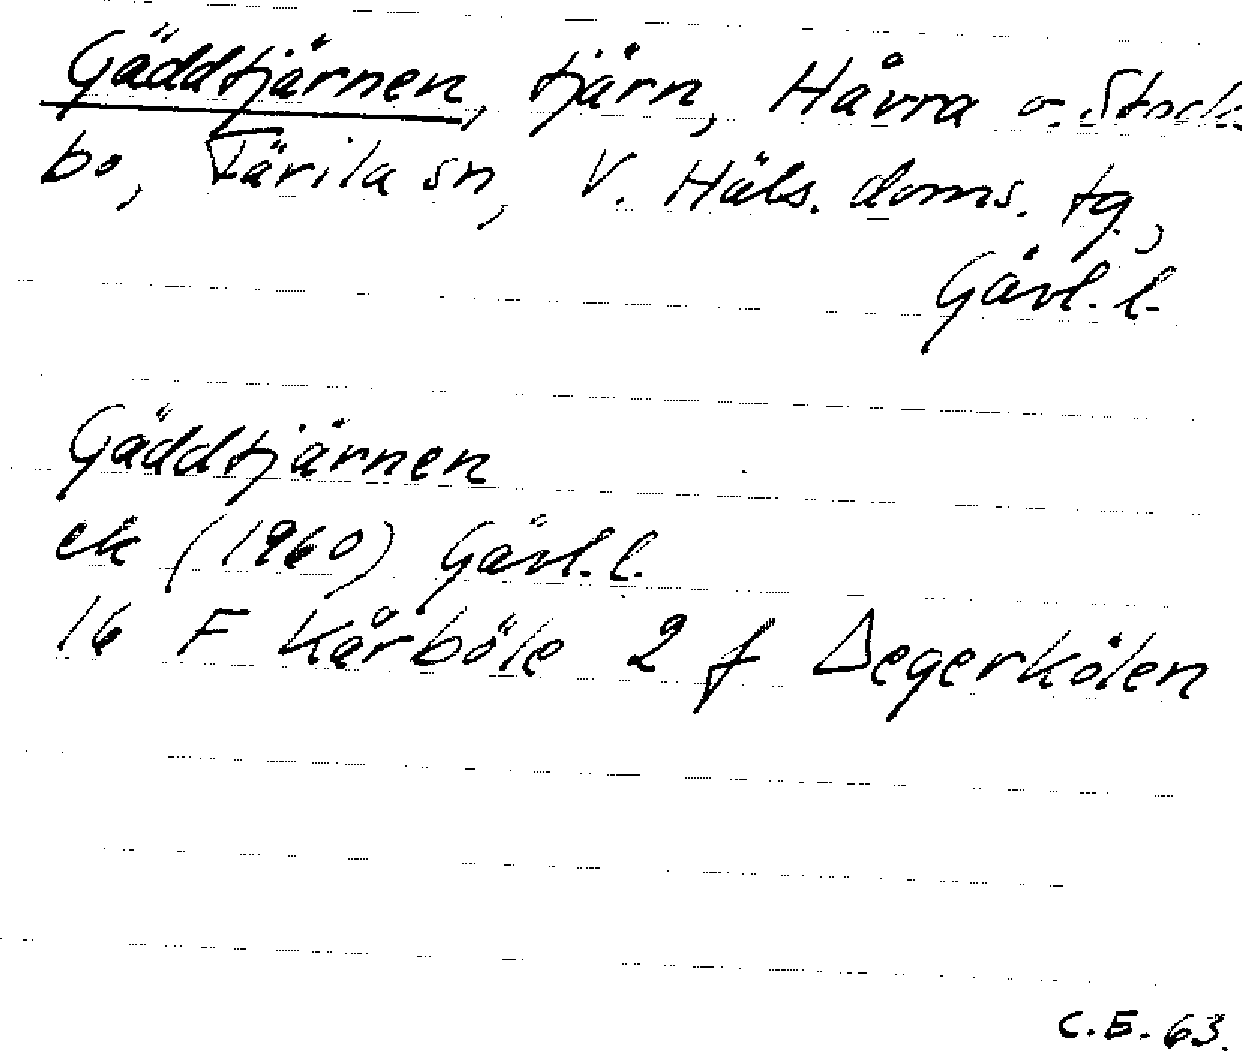 Gäddtjärnen, tjärn, Håvra o. Stocks
bo, Färila sn, V. Häls. doms. tg.,
Gävl. l.
Gäddtjärnen
ek (1960) Gävl. l.
16 F Kårböle 2 f Degerkölen
C.E. 63.